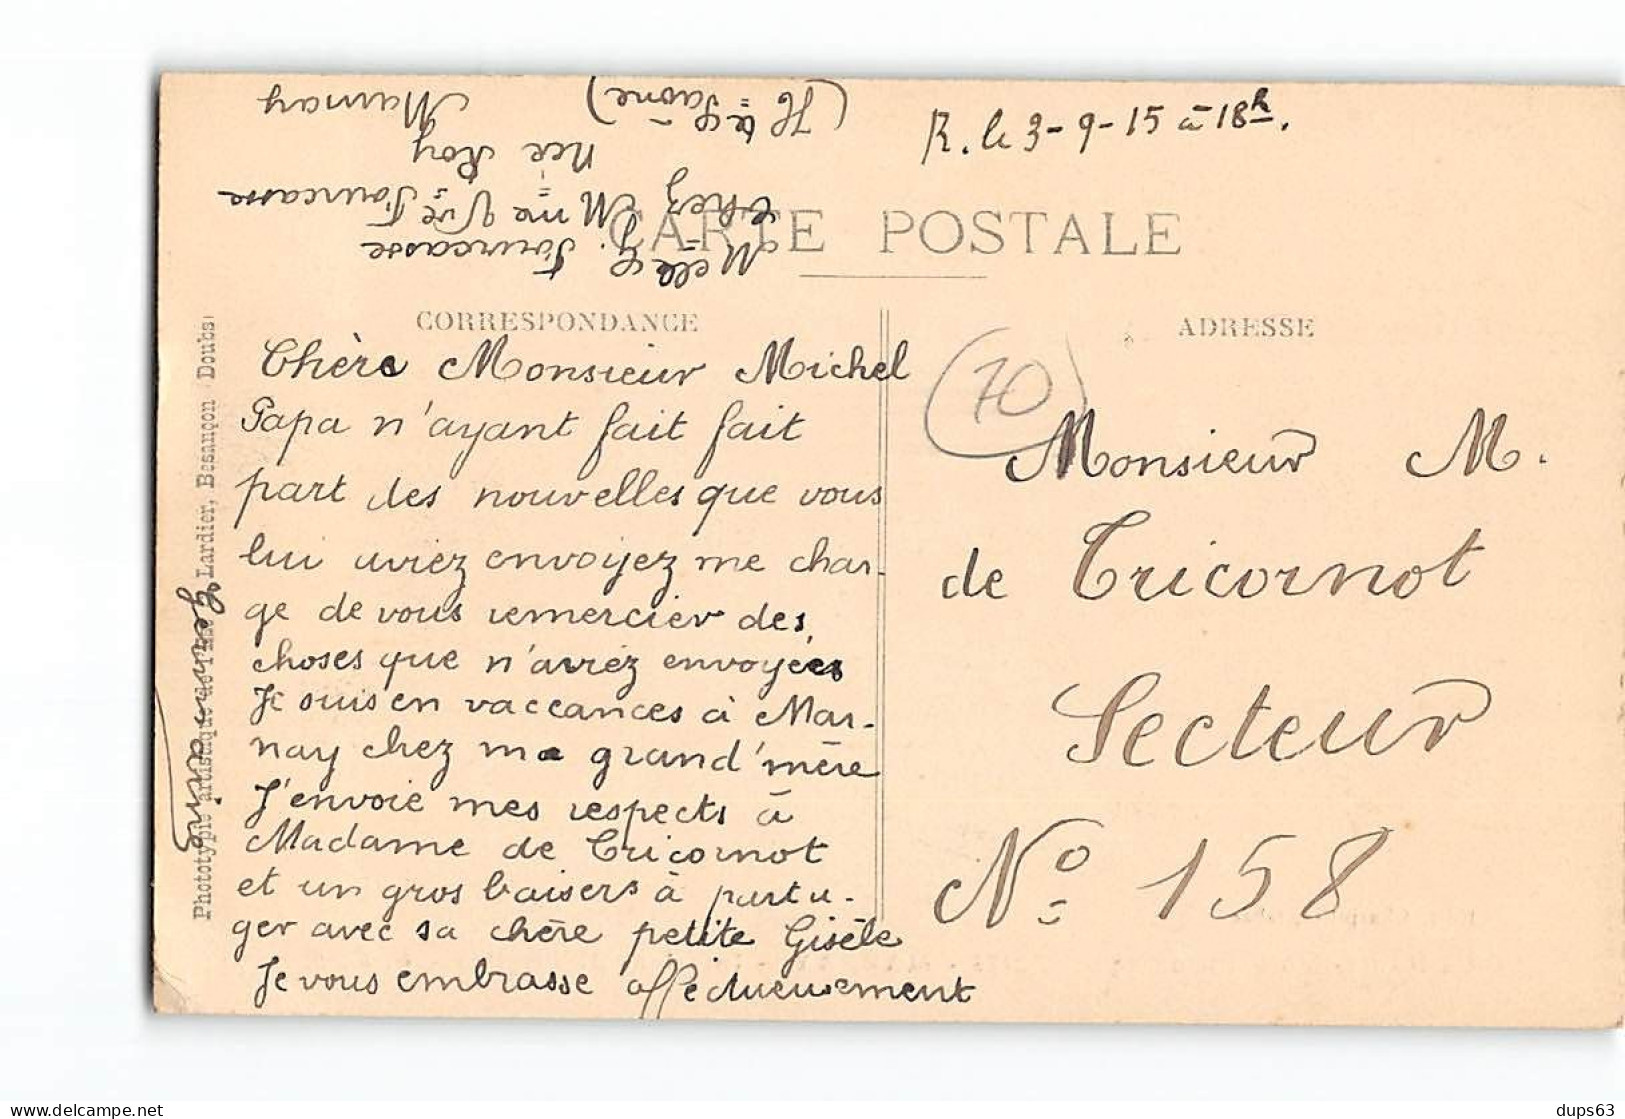 R. le 3-9-15 à 18h.
Melle G. Fourcasse
Chez Mme Vve Fourcasse
née Roy
Marnay
(Hte Saône)
CARTE POSTALE
CORRESPONDANCE
ADRESSE
Chère Monsieur Michel
Papa n'ayant fait fait
part des nouvelles que vous
lui aviez envoyez me char-
ge de vous remercier des
choses que n'aviez envoyées
Je suis en vaccances à Mar-
nay chez ma grand'mère
J'envoie mes respects à
Madame de Tricornot
et un gros baisers à parta-
ger avec sa chère petite Gisèle
Je vous embrasse affectueusement
Germaine
70
Monsieur M.
de Tricornot
Secteur
No 158
Phototypie artistique de l'Lardier, Besançon Doubs
dups63